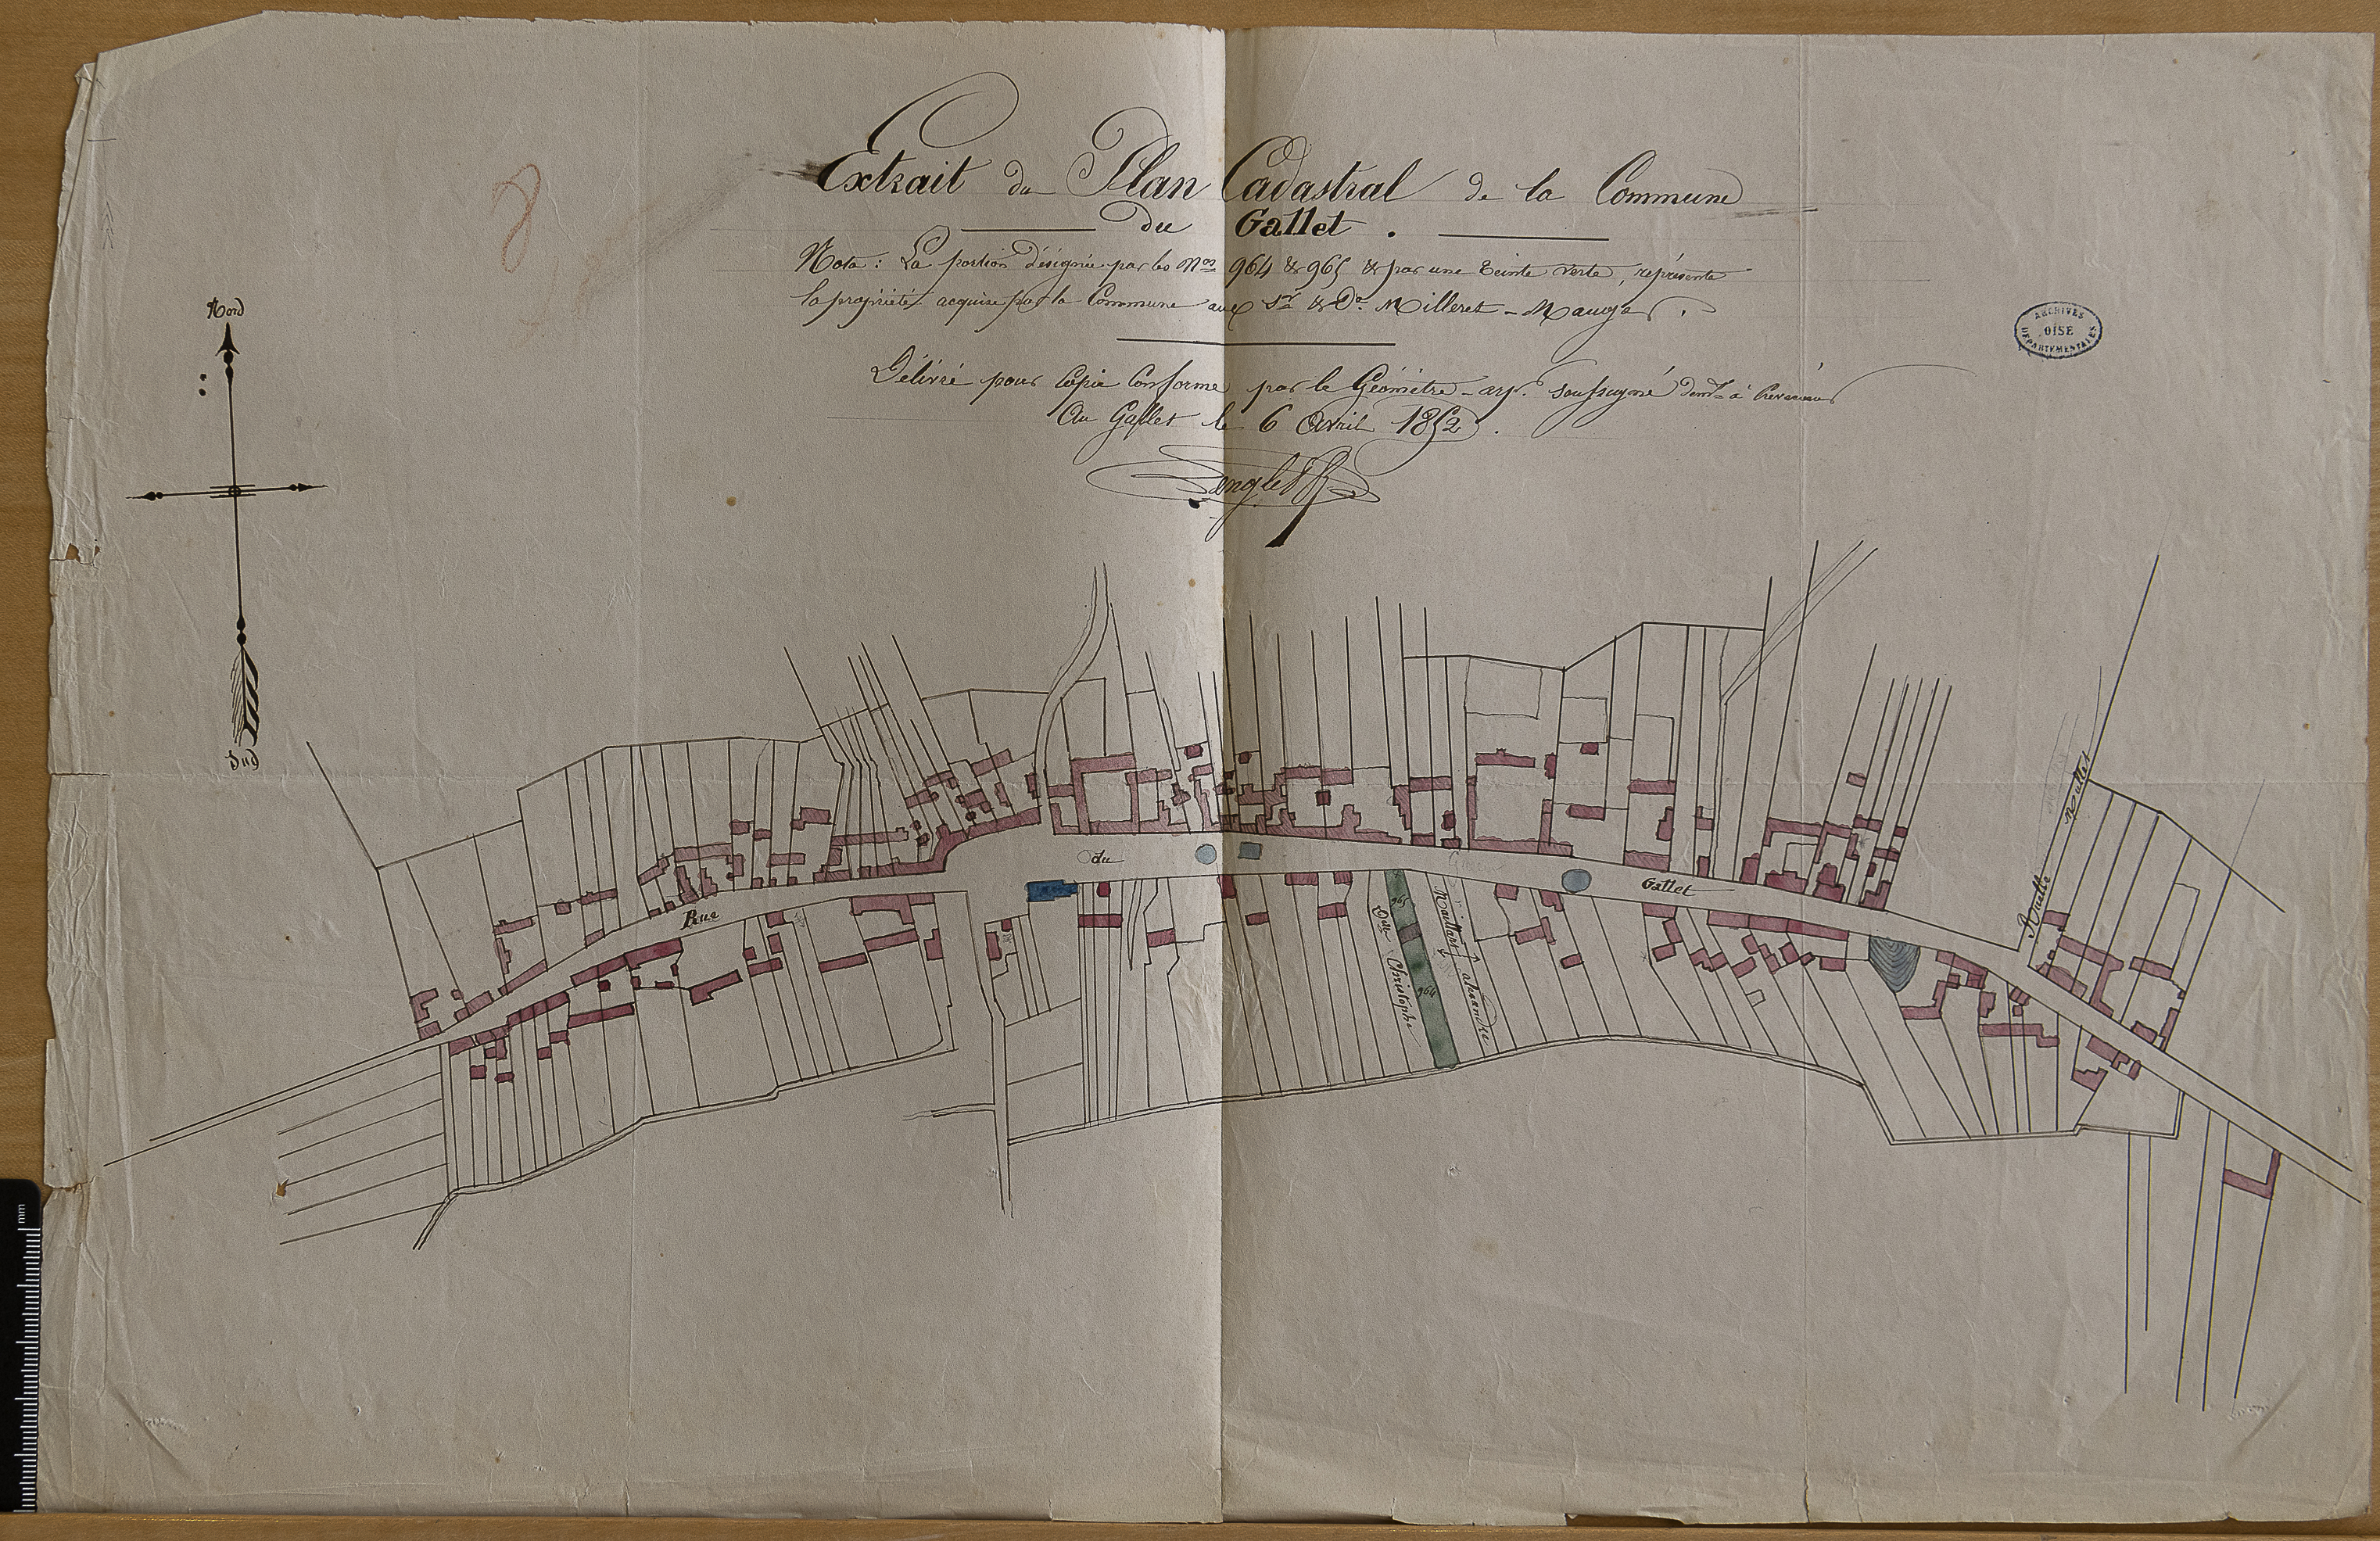 Extrait du Plan Cadastral de la Commune
du Gallet.
Nota: La portion désignée par les Nos 964 & 965 & par une teinte verte, représente
la propriété acquise par la Commune aux Sr & De Milleret-Mauger.
Délivré pour Copie Conforme par le Géomètre-arp. soussigné demt à
Au Gallet le 6 Avril 1852.
Nord
Sud
ARCHIVES
OISE
DÉPARTEMENTALES
Rue
du
Gallet
Ruelle Mallet
965
964
Christophe
alexandre
mm